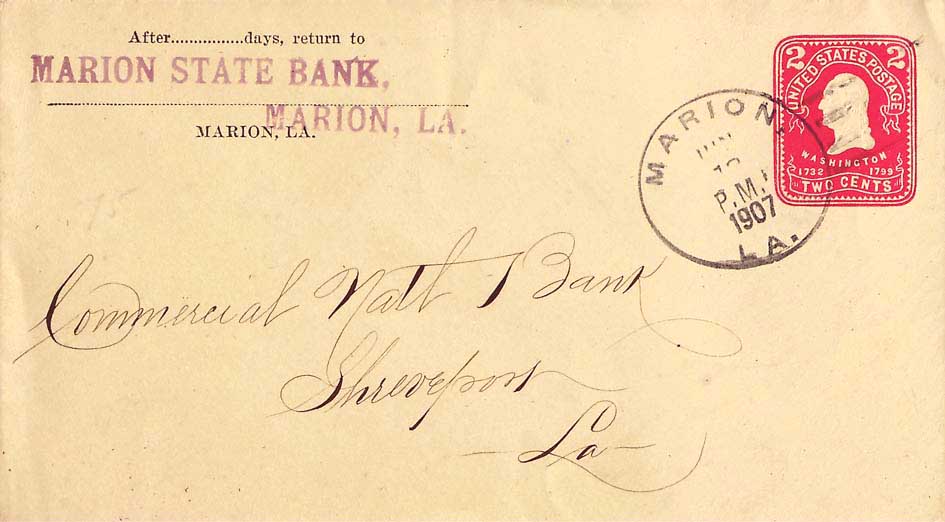 After...............days, return to
MARION STATE BANK,
MARION, LA.
MARION, LA.
2 2
UNITED STATES POSTAGE
WASHINGTON
1732 1799
TWO CENTS
MARION,
P.M.
1907
LA.
Commercial Natl Bank
Shreveport
La